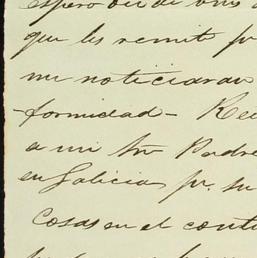 espero oir de Vms
que les remití pr
me noticiaran
formidad - Rec
a mi Sor Padre
en Galicia pr. su
cosas en el cont